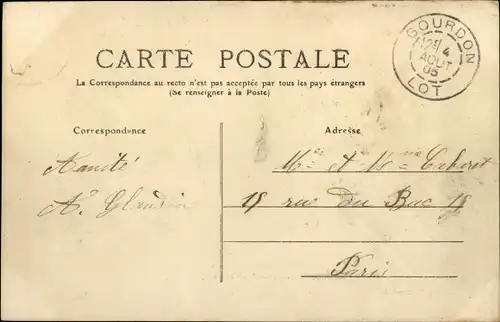 GOURDON
4
AOUT
05
LOT
CARTE POSTALE
La Correspondance au recto n'est pas acceptée par tous les pays étrangers
(Se renseigner à la Poste)
Correspondance
Adresse
Amitié
15 rue du Bac 15
Paris